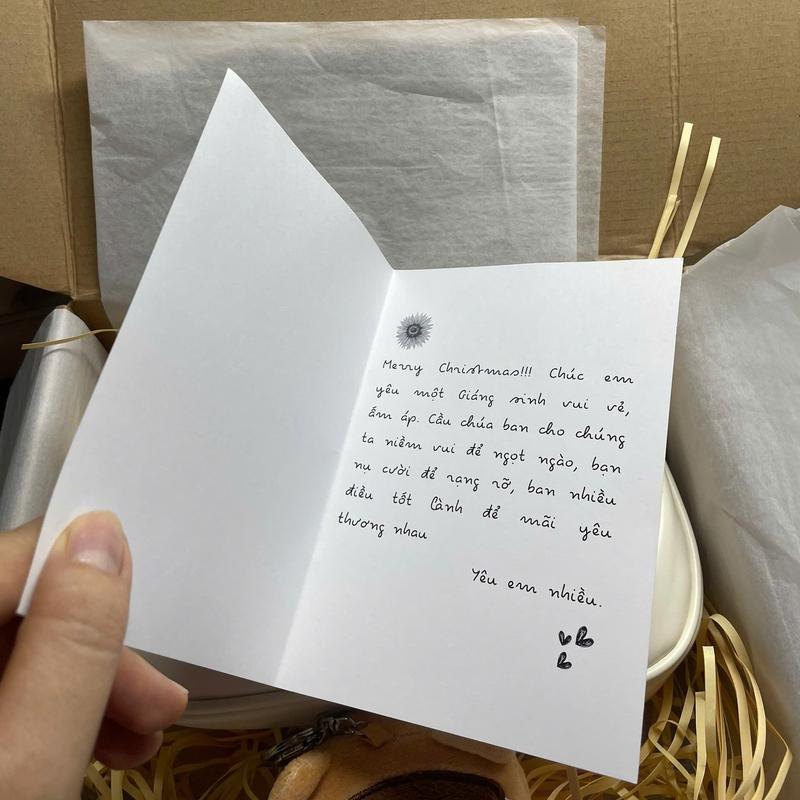 Merry Christmas!!! Chúc em
yêu một Giáng sinh vui vẻ,
ấm áp. Cầu chúa ban cho chúng
ta niềm vui để ngọt ngào, bạn
nụ cười để rạng rỡ, ban nhiều
điều tốt lành để mãi yêu
thương nhau
Yêu em nhiều.